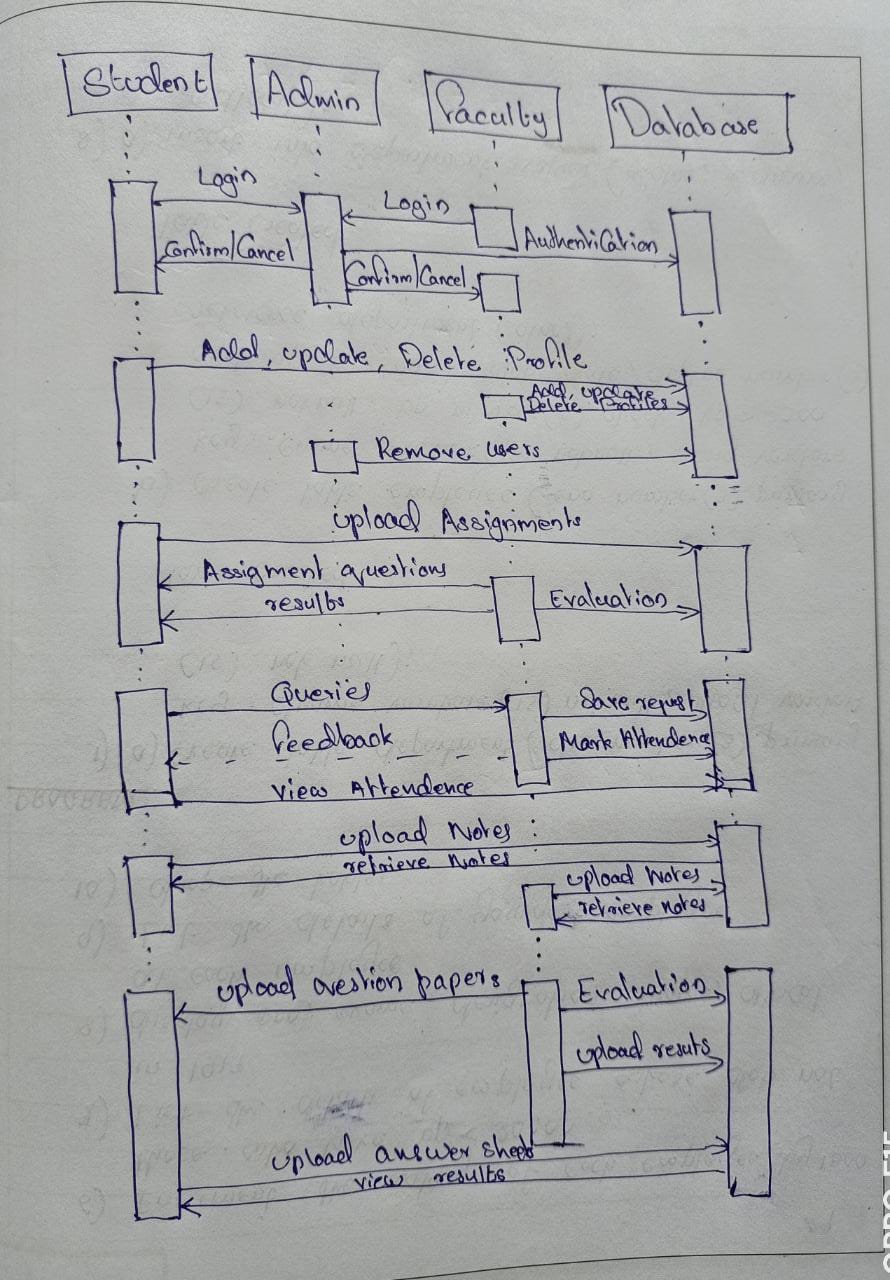 Student
Admin
Faculty
Database
Login
Login
Authentication
Confirm/Cancel
Confirm/Cancel
Add, update, Delete Profile
Add, update
Delete Profiles
Remove users
upload Assignments
Assigment questions
results
Evaluation
Queries
Save requst
feedback
Mark Attendence
view Attendence
upload Notes
retrieve Notes
upload Notes
retrieve notes
upload question papers
Evaluation
upload resuts
upload answer sheets
view results